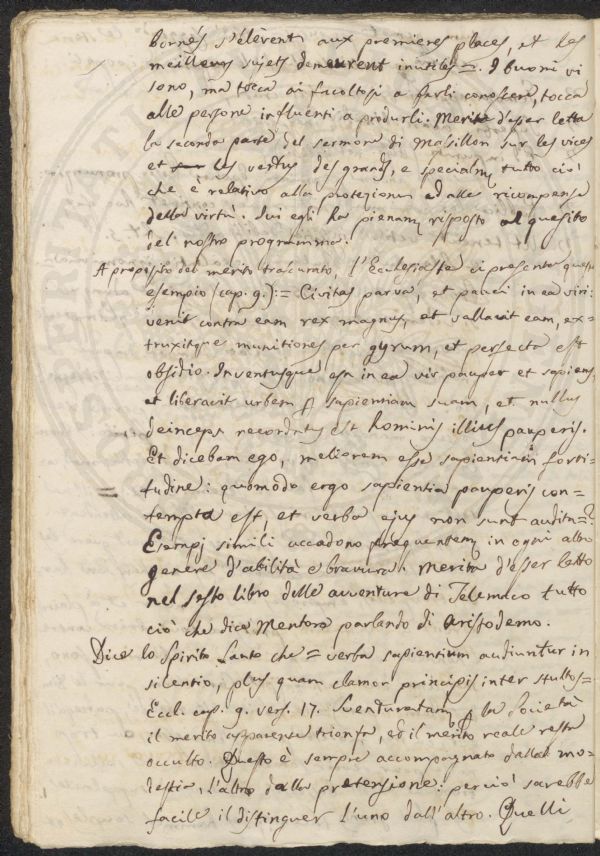 bornés s'élèvent aux premieres places, et les
meilleurs sujets demeurent inutiles =. I buoni vi
sono, ma tocca ai facoltosi a farli conoscere, tocca
alle persone influenti a produrli. Merita d'esser letta
la seconda parte del sermone di Massillon sur les vices
et les vertus des grands, e specialm. tutto ciò
che è relativo alla protezione ed alle ricompense
della virtù. Ivi egli ha pienam. risposto al quesito
del nostro programma.
A proposito del merito trascurato, l'Ecclesiaste ci presenta questo
esempio (cap. 9.): = Civitas parva, et pauci in ea viri:
venit contra eam rex magnus, et vallavit eam, ex-
truxitque munitiones per gyrum, et perfecta est
obsidio. Inventusque est in ea vir pauper et sapiens,
et liberavit urbem p sapientiam suam, et nullus
deinceps recordatus est hominis illius pauperis.
Et dicebam ego, meliorem esse sapientiam forti-
tudine: quomodo ergo sapientia pauperis con-
tempta est, et verba ejus non sunt audita = ?
Esempj simili accadono frequentem. in ogni altro
genere d'abilità e bravura. Merita d'esser letto
nel sesto libro delle avventure di Telemaco tutto
ciò che dice Mentore parlando di Aristodemo.
Dice lo Spirito Santo che = verba sapientium audiuntur in
silentio, plus quam clamor principis inter stultos =
Eccl. cap. 9. vers. 17. Sventuratam. p la Società
il merito apparente trionfa, ed il merito reale resta
occulto. Questo è sempre accompagnato dalla mo-
destia, l'altro dalla pretensione: perciò sarebbe
facile il distinguer l'uno dall'altro. Quelli